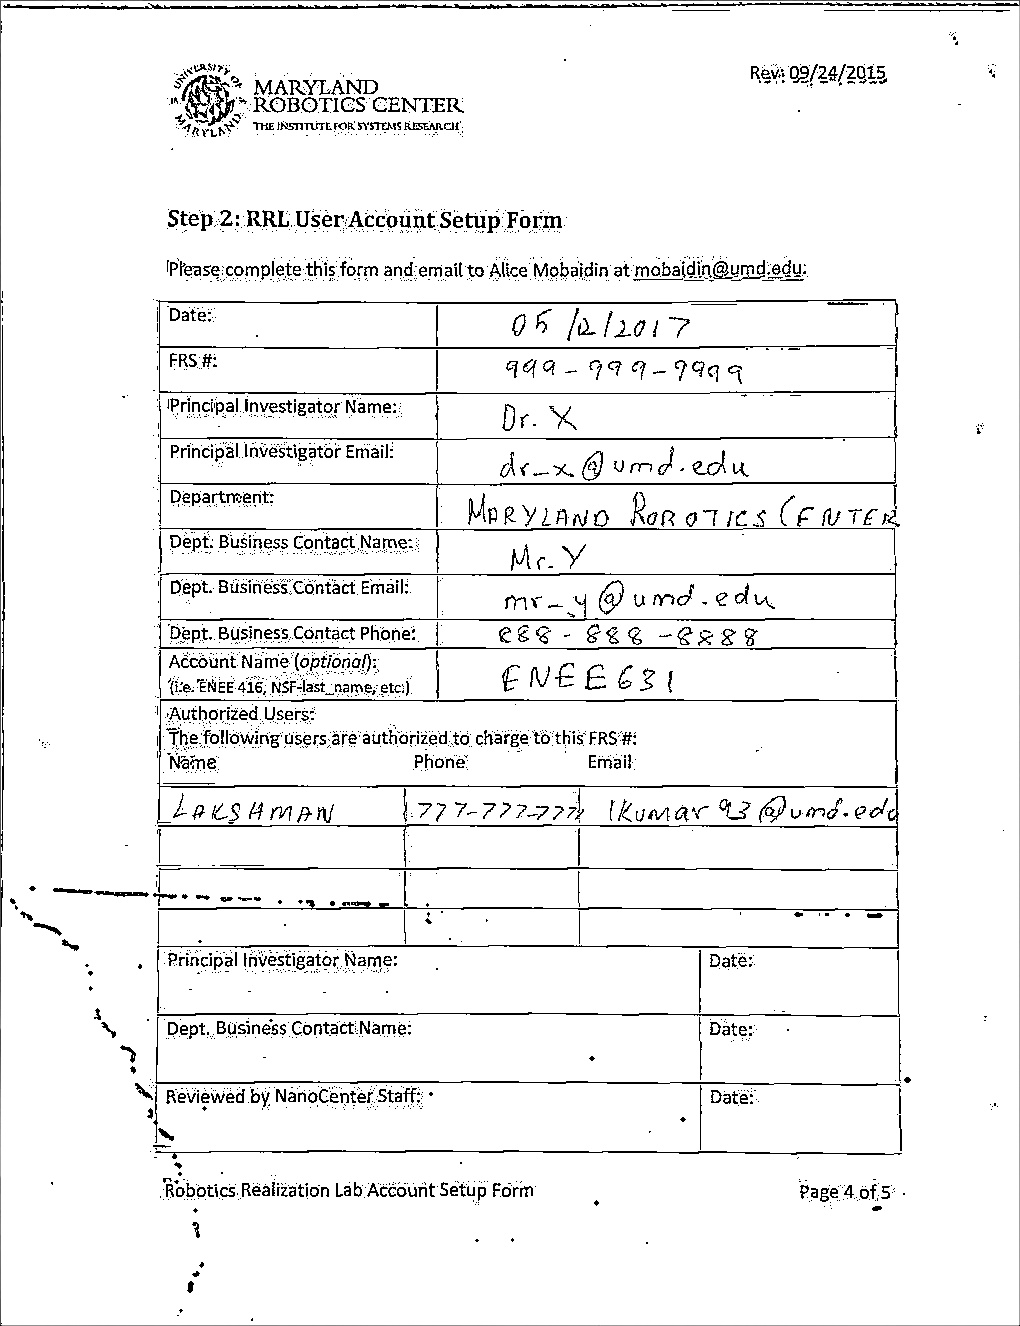 UNIVERSITY OF MARYLAND
MARYLAND
ROBOTICS CENTER
THE INSTITUTE FOR SYSTEMS RESEARCH
Rev: 09/24/2015
Step 2: RRL User Account Setup Form
Please complete this form and email to Alice Mobaidin at mobaidin@umd.edu:
Date: 05/12/2017
FRS #: 999-999-9999
Principal Investigator Name: Dr. X
Principal Investigator Email: dr_x@umd.edu
Department: MARYLAND ROBOTICS CENTER
Dept. Business Contact Name: Mr. Y
Dept. Business Contact Email: mr_y@umd.edu
Dept. Business Contact Phone: 888-888-8888
Account Name (optional): ENEE631
(i.e. ENEE 416, NSF-last_name, etc.)
Authorized Users:
The following users are authorized to charge to this FRS #:
Name Phone Email
LAKSHMAN 777-777-777 lkumar93@umd.edu
Principal Investigator Name: Date:
Dept. Business Contact Name: Date:
Reviewed by NanoCenter Staff: Date:
Robotics Realization Lab Account Setup Form Page 4 of 5